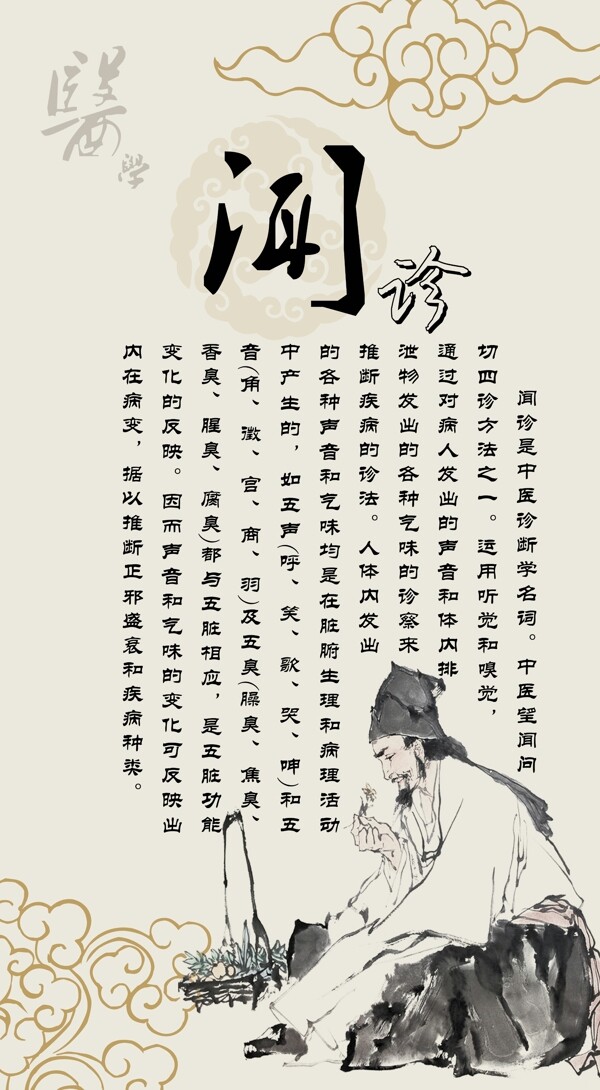 醫
學
闻
诊
闻诊是中医诊断学名词。中医望闻问
切四诊方法之一。运用听觉和嗅觉，
通过对病人发出的声音和体内排
泄物发出的各种气味的诊察来
推断疾病的诊法。人体内发出
的各种声音和气味均是在脏腑生理和病理活动
中产生的，如五声(呼、笑、歌、哭、呻)和五
音(角、徵、宫、商、羽)及五臭(臊臭、焦臭、
香臭、腥臭、腐臭)都与五脏相应，是五脏功能
变化的反映。因而声音和气味的变化可反映出
内在病变，据以推断正邪盛衰和疾病种类。